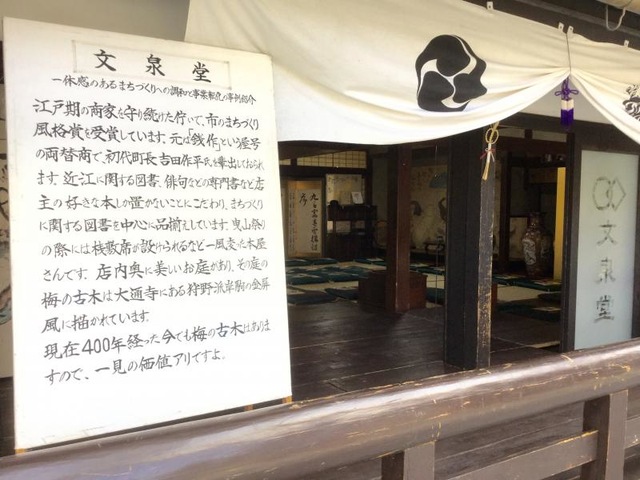 文泉堂
一体感のあるまちづくりへの調和と事業転化の事例紹介
江戸期の商家を守り続けた佇いで、市のまちづくり
風格賞を受賞しています。元は「銭作」という屋号
の両替商で、初代町長吉田作平氏を輩出しておられ
ます。近江に関する図書、俳句などの専門書など店
主の好きな本しか置かないことにこだわり、まちづくり
に関する図書を中心に品揃えしています。曳山祭り
の際には桟敷席が設けられるなど一風変った本屋
さんです。店内奥に美しいお庭があり、その庭の
梅の古木は大通寺にある狩野派岸駒の金屏
風に描かれています。
現在400年経った今でも梅の古木はありま
すので、一見の価値アリですよ。
文泉堂